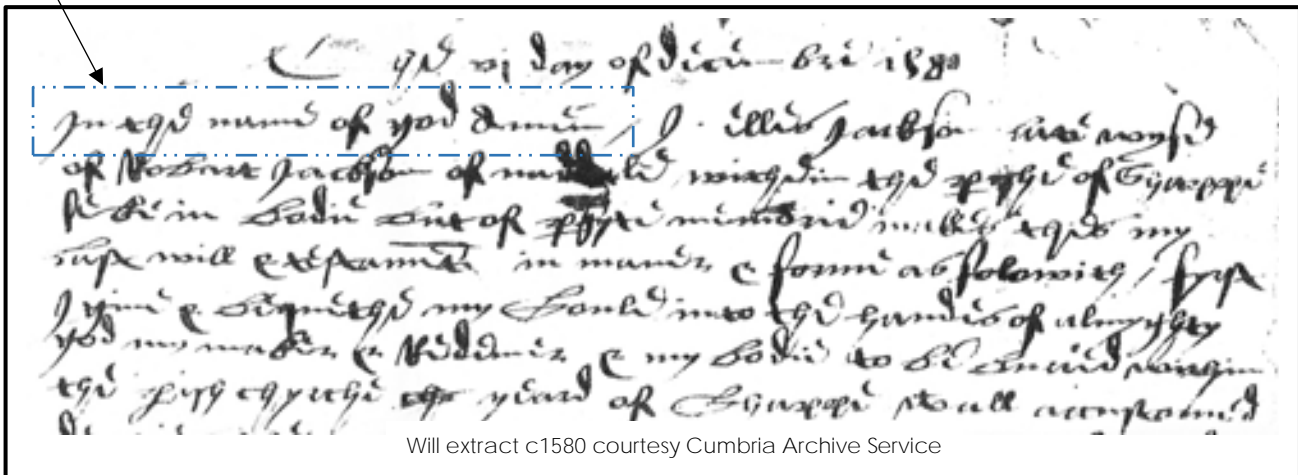 the vj day of december 1580
In the name of god Amen / I Elles Jackson late wyfe
of Robert Jackson of withein the of Shappe
seke in bodie but of memorie makes thes my
last will & testament in maner & forme as folowith / fyrst
I gine & bequethe my soule into the handes of almyghty
god my maker & Redemer & my bodie to be buried within
the pish chyrche yeard of Shappe wt all accustomed
Will extract c1580 courtesy Cumbria Archive Service